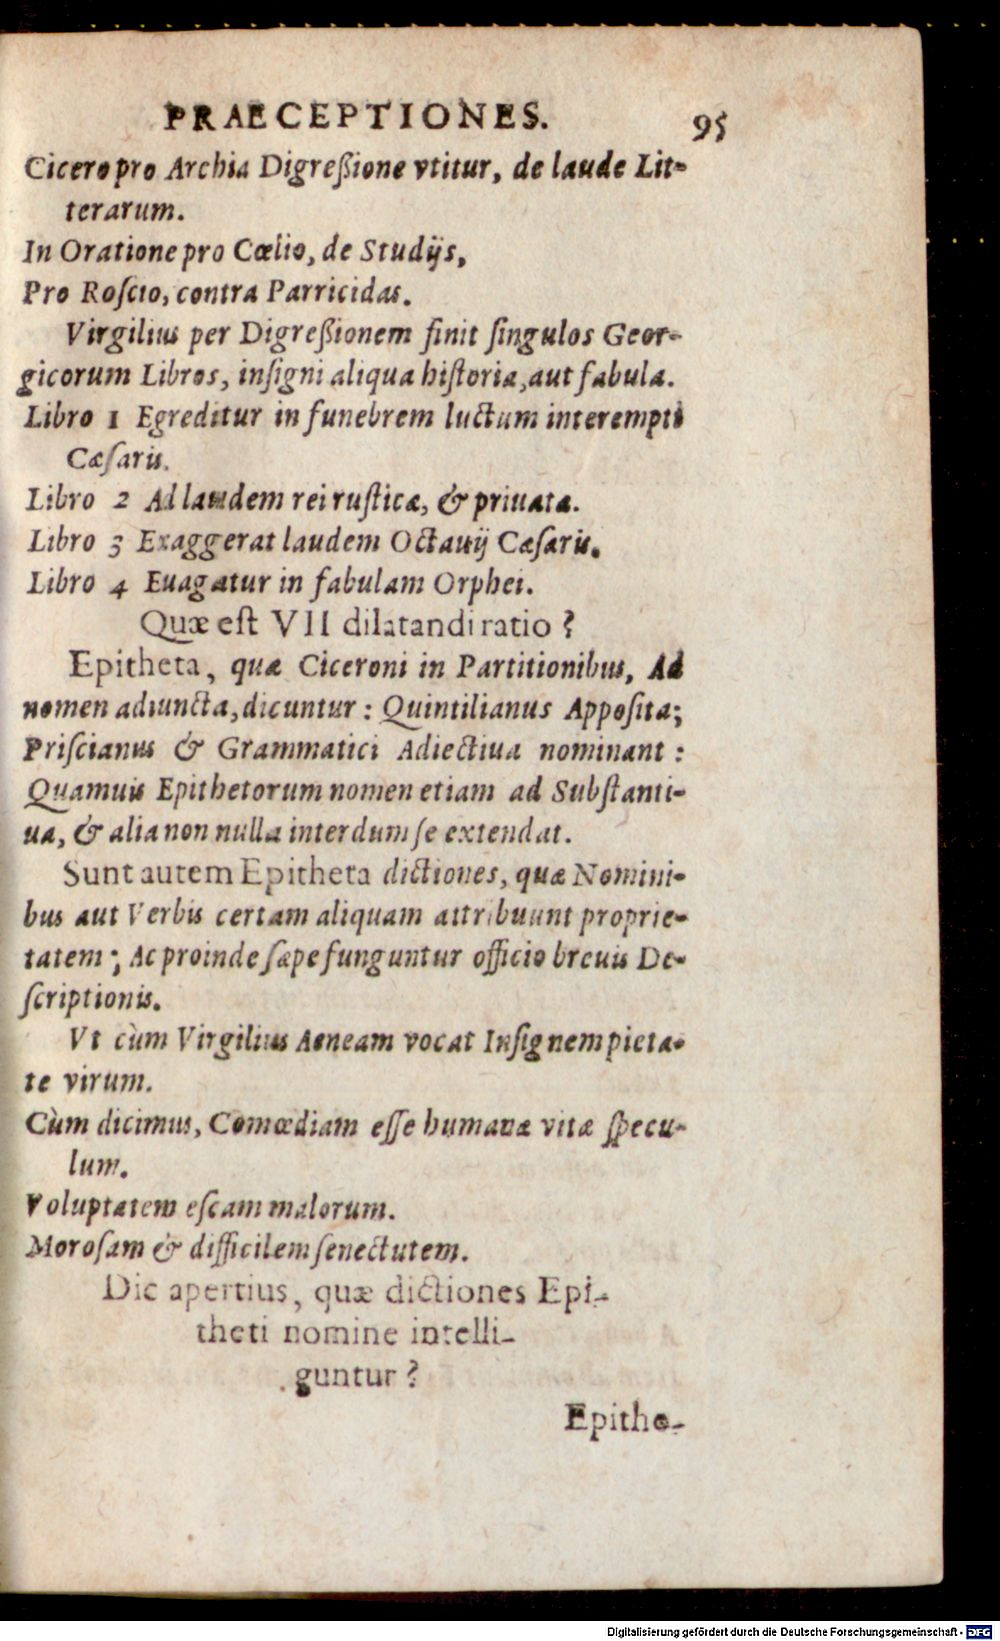 PRAECEPTIONES. 95
Cicero pro Archia Digreßione vtitur, de laude Lit-
terarum.
In Oratione pro Cœlio, de Studijs,
Pro Roſcio, contra Parricidas.
Virgilius per Digreßionem finit ſingulos Geor-
gicorum Libros, inſigni aliqua hiſtoria, aut fabula.
Libro 1 Egreditur in funebrem luctum interempti
Cæſaris.
Libro 2 Ad laudem rei ruſticæ, & priuatæ.
Libro 3 Exaggerat laudem Octauij Cæſaris.
Libro 4 Euagatur in fabulam Orphei.
Quæ eſt VII dilatandi ratio?
Epitheta, quæ Ciceroni in Partitionibus, Ad
nomen adiuncta, dicuntur: Quintilianus Appoſita;
Priſcianus & Grammatici Adiectiua nominant:
Quamuis Epithetorum nomen etiam ad Subſtanti-
ua, & alia non nulla interdum ſe extendat.
Sunt autem Epitheta dictiones, quæ Nomini-
bus aut Verbis certam aliquam attribuunt proprie-
tatem; Ac proinde ſæpe funguntur officio breuis De-
ſcriptionis.
Vt cùm Virgilius Aeneam vocat Inſignem pieta-
te virum.
Cùm dicimus, Comœdiam eſſe humanæ vitæ ſpecu-
lum.
Voluptatem eſcam malorum.
Moroſam & difficilem ſenectutem.
Dic apertius, quæ dictiones Epi-
theti nomine intelli-
guntur?
Epithe-
Digitalisierung gefördert durch die Deutsche Forschungsgemeinschaft - DFG